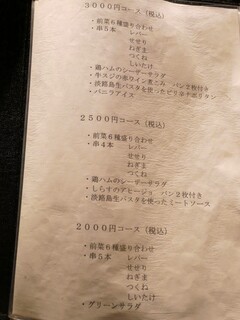 3000円コース(税込)
・前菜6種盛り合わせ
・串5本 レバー
せせり
ねぎま
つくね
しいたけ
・鶏ハムのシーザーサラダ
・牛スジの赤ワイン煮こみ パン2枚付き
・淡路島生パスタを使ったピリ辛ナポリタン
・バニラアイス
2500円コース(税込)
・前菜6種盛り合わせ
・串4本 レバー
せせり
ねぎま
つくね
・鶏ハムのシーザーサラダ
・しらすのアヒージョ パン2枚付き
・淡路島生パスタを使ったミートソース
2000円コース(税込)
・前菜6種盛り合わせ
・串5本 レバー
せせり
ねぎま
つくね
しいたけ
・グリーンサラダ